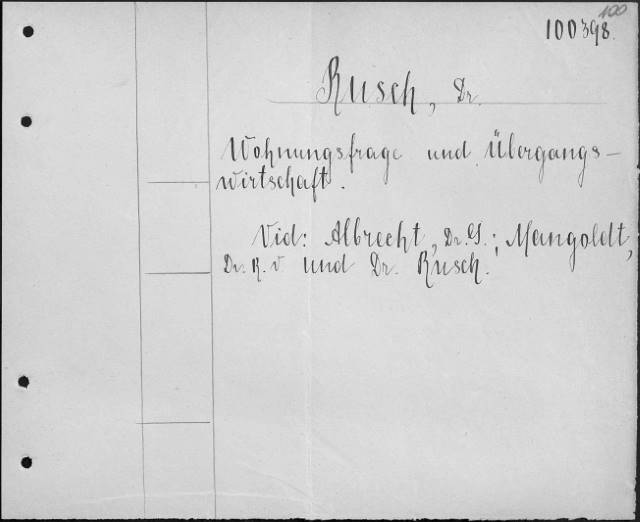 100
100398.
Rusch, Dr.
Wohnungsfrage und Übergangs-
wirtschaft.
Vid: Albrecht, Dr. G.; Mangoldt,
Dr. K. v und Dr. Rusch.